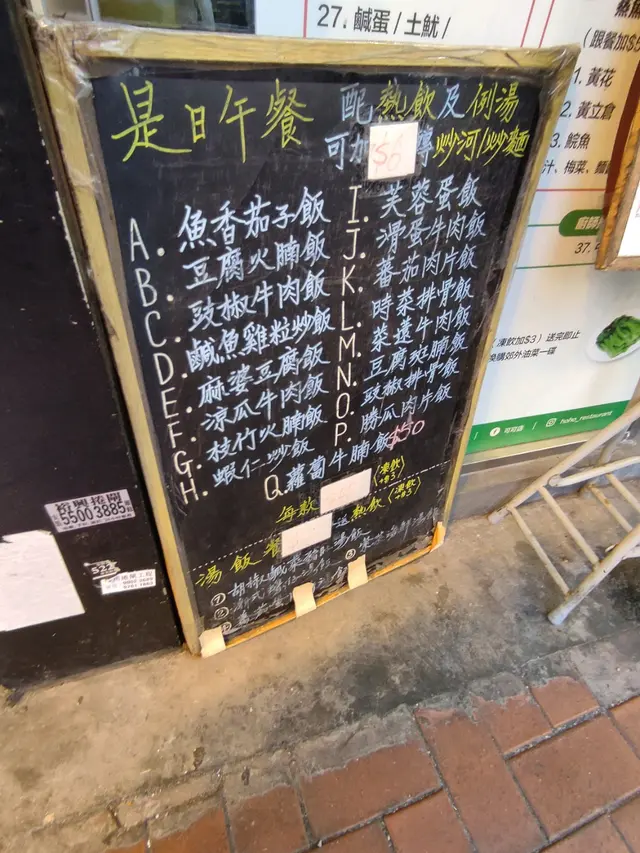 27. 鹹蛋 / 土魷 /
是日午餐
配熱飲及例湯
可加$6轉炒河/炒麵
A. 魚香茄子飯
B. 豆腐火腩飯
C. 豉椒牛肉飯
D. 鹹魚雞粒炒飯
E. 麻婆豆腐飯
F. 涼瓜牛肉飯
G. 枝竹火腩飯
H. 蝦仁炒飯
I. 芙蓉蛋飯
J. 滑蛋牛肉飯
K. 蕃茄肉片飯
L. 時菜排骨飯
M. 菜薳牛肉飯
N. 豆腐斑腩飯
O. 豉椒排骨飯
P. 勝瓜肉片飯
Q. 蘿蔔牛腩飯 $50
每款
(凍飲+$3)
湯飯餐
送熱飲(凍飲+$3)
①
②
③
(跟餐加$5
1. 黃花
2. 黃立倉
3. 鯇魚
汁、梅菜、麵
廚師
37.
(凍飲加$3) 送完即止
換購郊外油菜一碟
可可店 / hoho_restaurant
5500 3885